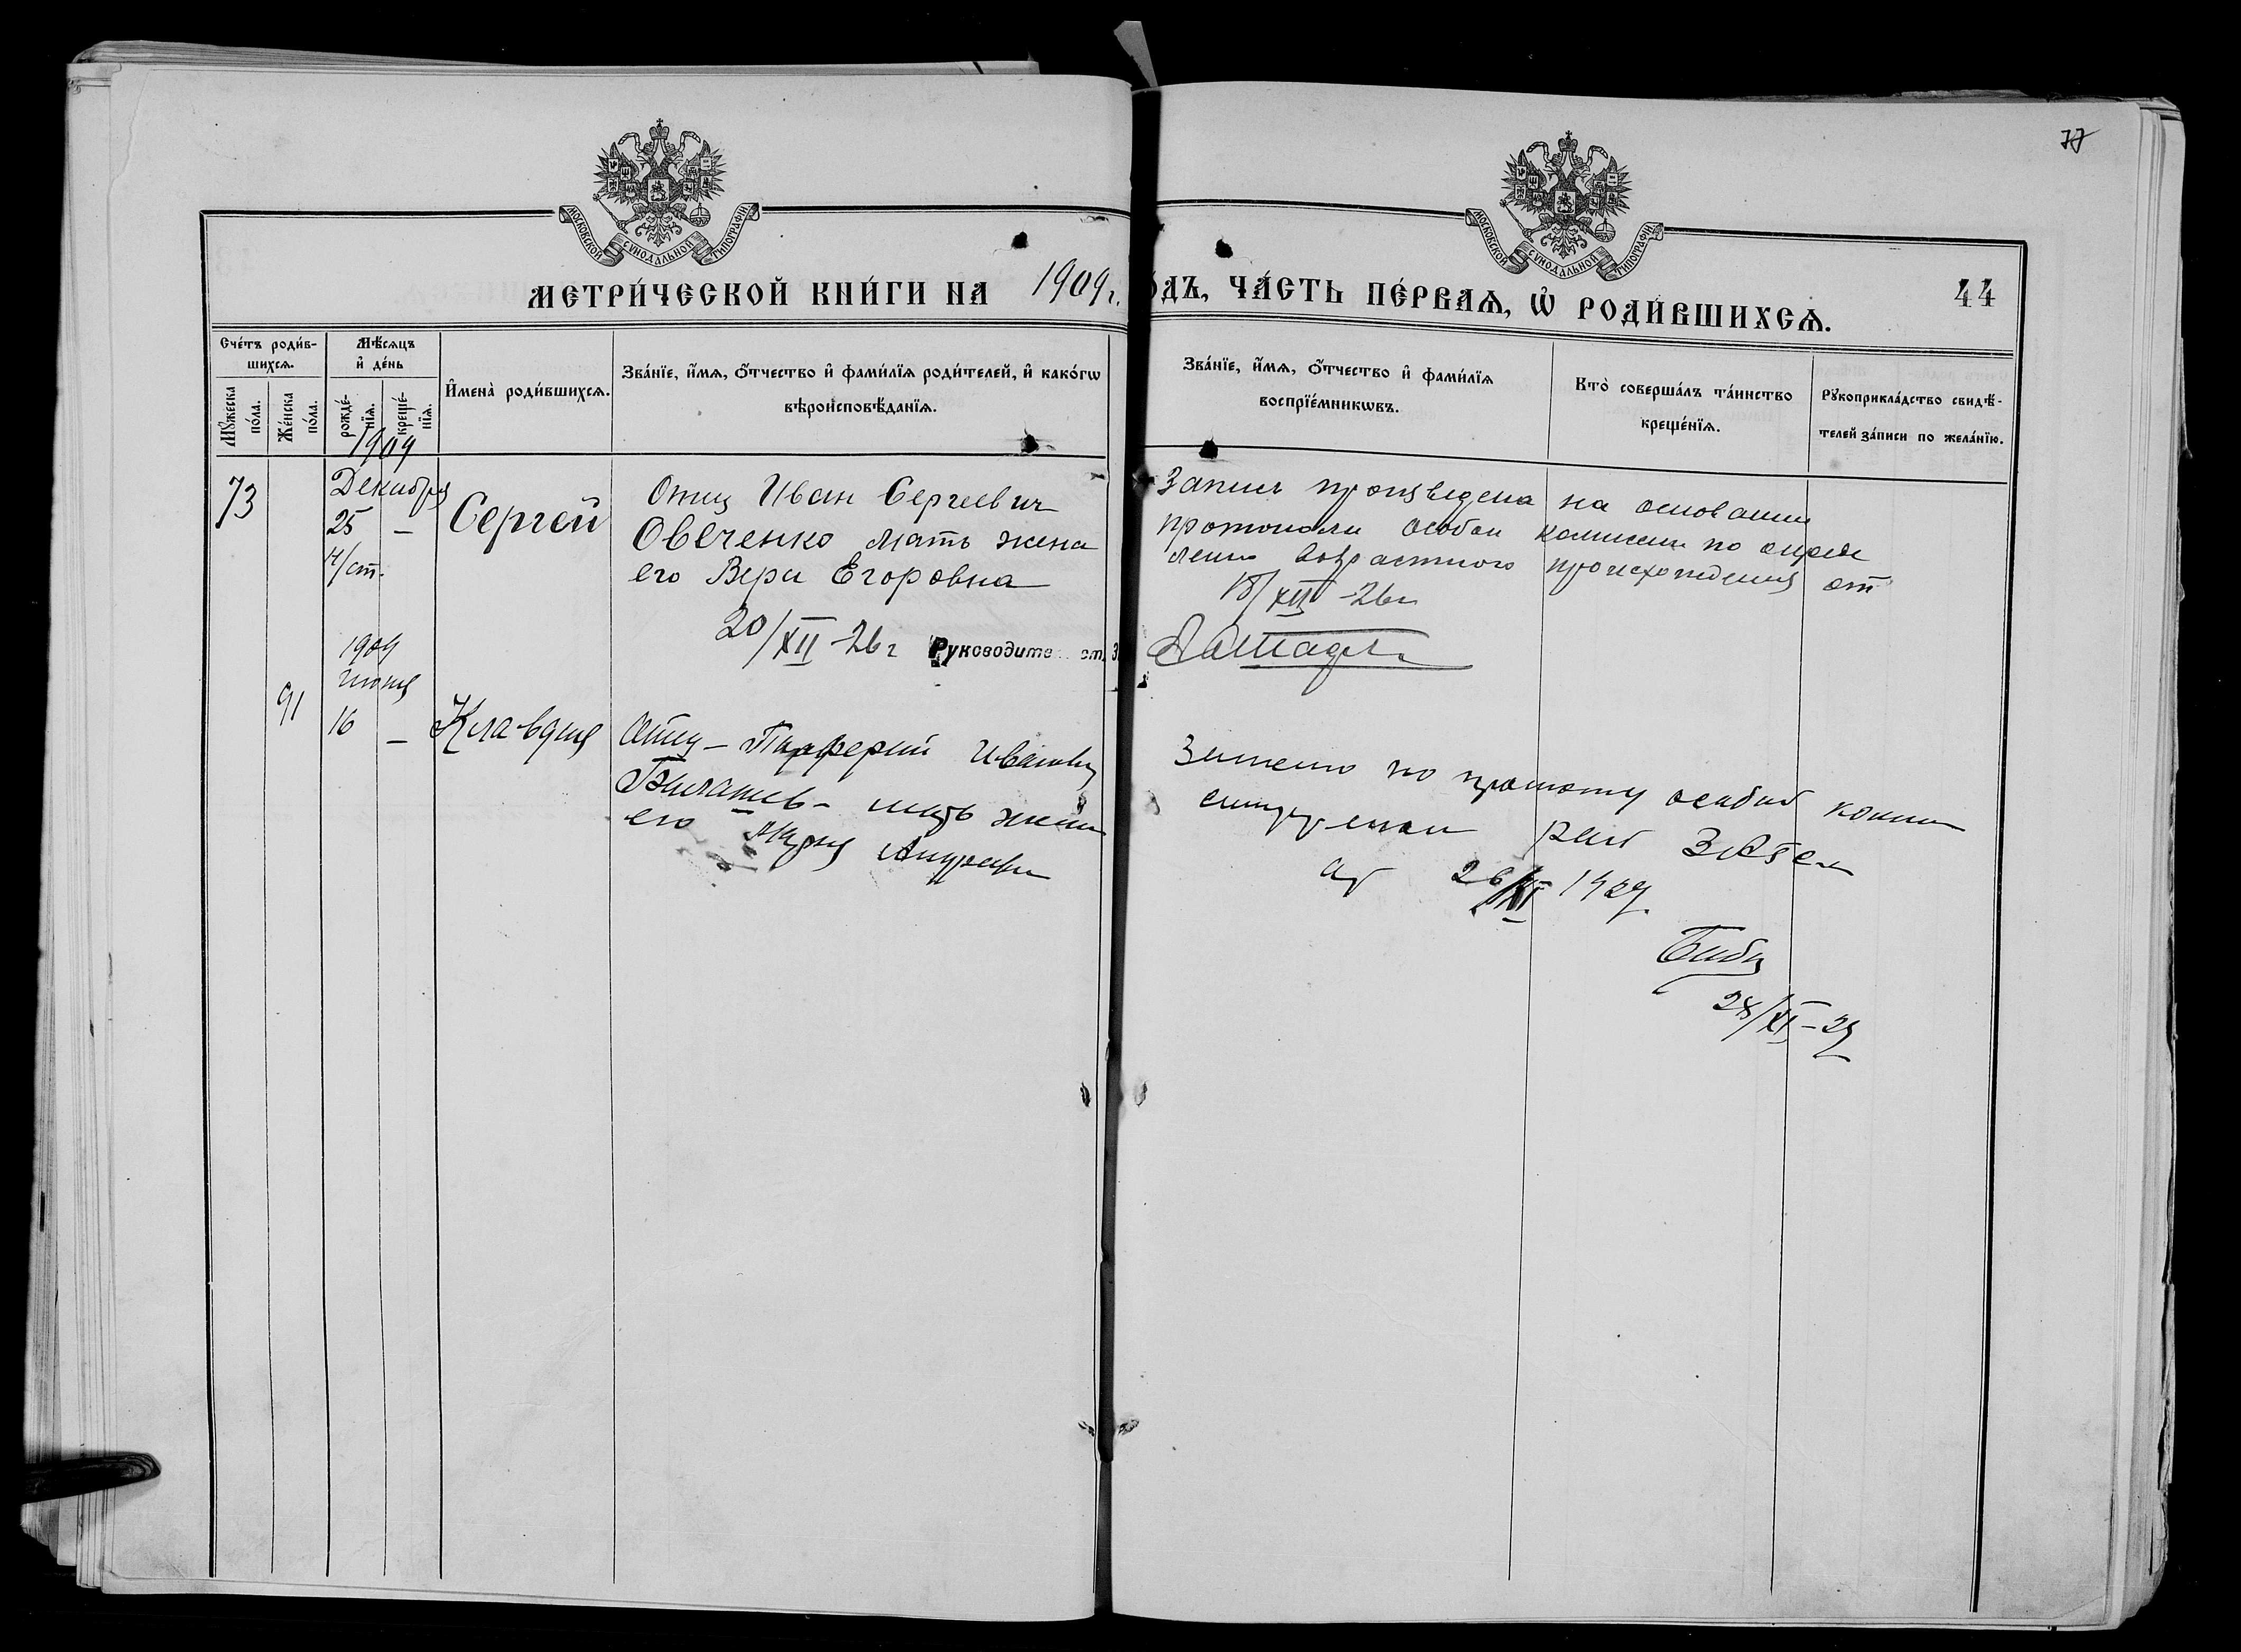 77
МОСКОВСКОЙ СѴНОДАЛЬНОЙ ТИПОГРАФІИ
МОСКОВСКОЙ СѴНОДАЛЬНОЙ ТИПОГРАФІИ
МЕТРИ́ЧЕСКОЙ КНИ́ГИ НА 1909 г.
О́ДЪ, ЧА́СТЬ ПЕ́РВАѦ, Ѡ҆ РОДИ́ВШИХСѦ.
44
Сче́тъ роди́в-
шихсѧ.
Мꙋ́жеска
по́ла.
Же́нска
по́ла.
Мѣ́сѧцъ
и҆ де́нь
рожде́-
нїѧ.
креще́-
нїѧ.
И҆мена̀ роди́вшихсѧ.
Зва́нїе, и҆́мѧ, ѻ҆́тчество и҆ фами́лїѧ роди́телей, и҆ како́гѡ
вѣроисповѣ́данїѧ.
Зва́нїе, и҆́мѧ, ѻ҆́тчество и҆ фами́лїѧ
воспрїе́мникѡвъ.
Кто̀ соверша́лъ та́инство
креще́нїѧ.
Рꙋкоприкла́дство свидѣ́-
телей за́писи по жела́нїю.
1909
73
Декабря
25 —
н/ст.
Сергей
Отец Иван Сергеевич
Овеченко мать жена
его Вера Егоровна
20/XII-26 г
Руководите
Запись произведена на основании
протокола особой комиссии по опреде
лению возрастного происхождения от
18/XII-26 г
1909
Июня
91
16 —
Клавдия
Отец — Иванович
мать жена
его
по особой
ЗАГСа
от 26/XI 1927
28/XI-27